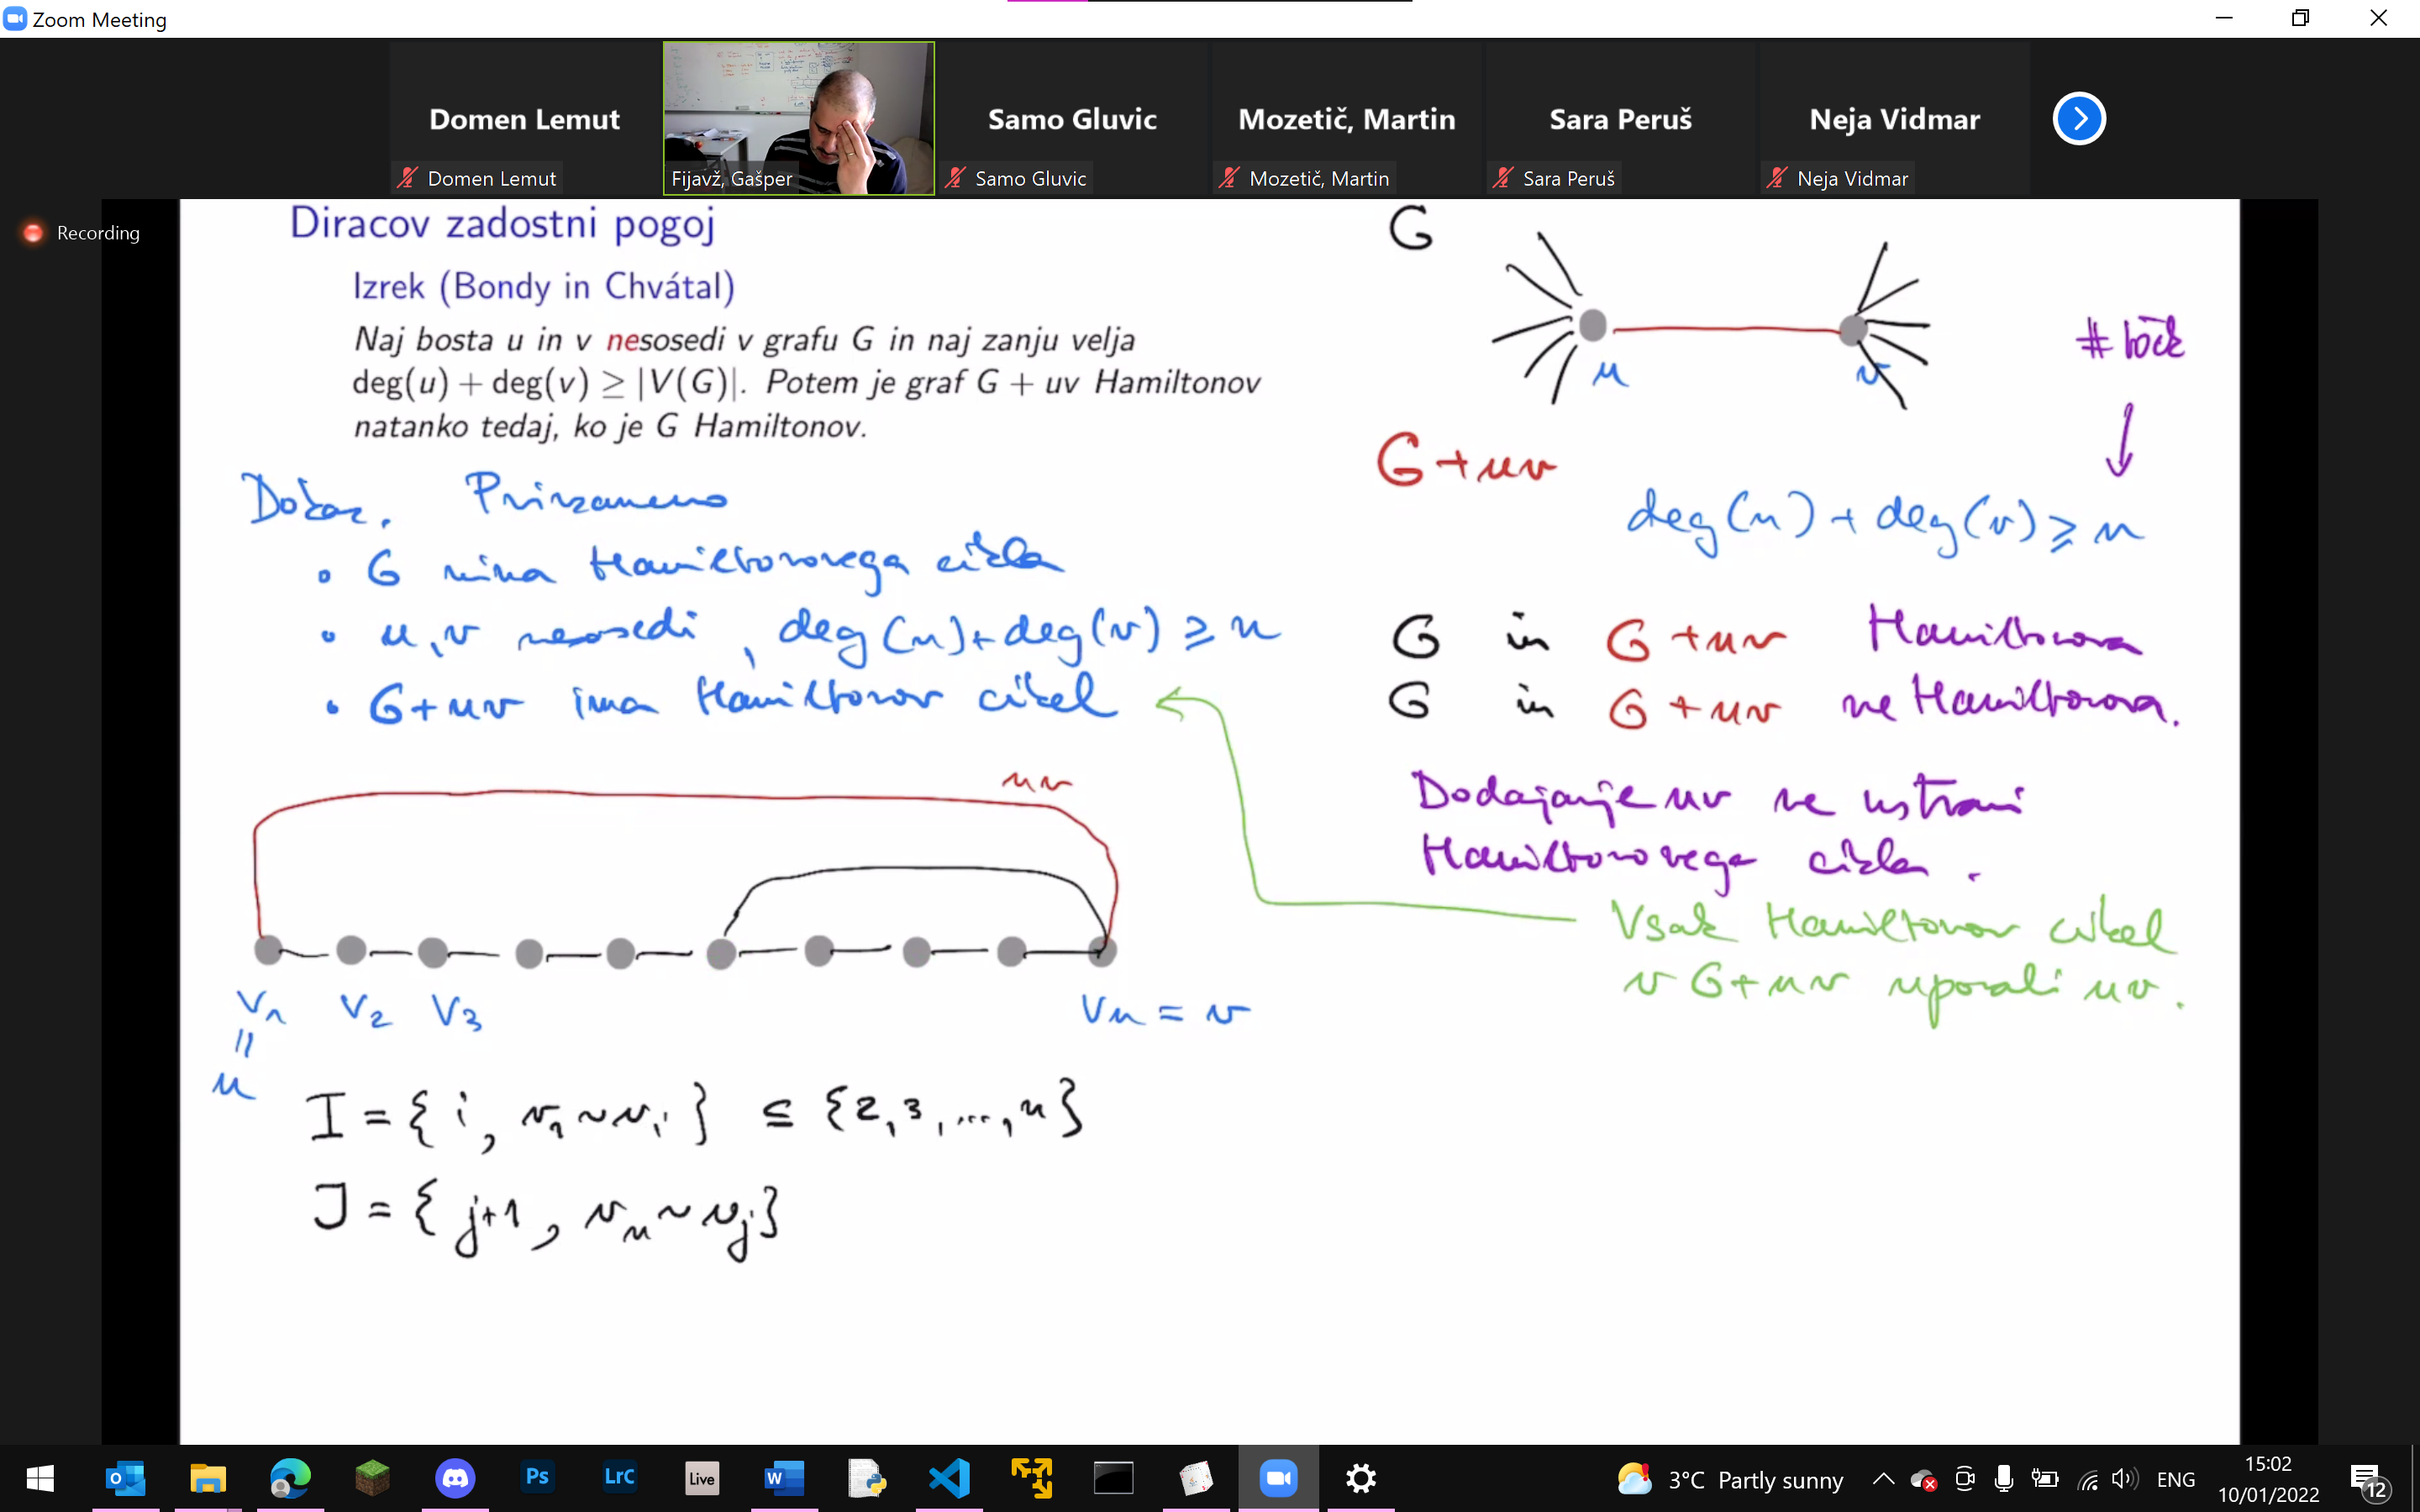 Zoom Meeting
Domen Lemut
Samo Gluvic
Mozetič, Martin
Sara Peruš
Neja Vidmar
Domen Lemut
Fijavž, Gašper
Samo Gluvic
Mozetič, Martin
Sara Peruš
Neja Vidmar
Recording
Diracov zadostni pogoj
Izrek (Bondy in Chvátal)
Naj bosta u in v nesosedi v grafu G in naj zanju velja
deg(u) + deg(v) ≥ |V(G)|. Potem je graf G + uv Hamiltonov
natanko tedaj, ko je G Hamiltonov.
Dokaz. Privzamemo
• G nima Hamiltonovega cikla
• u,v nesosedi, deg(u)+deg(v) ≥ n
• G+uv ima Hamiltonov cikel
uv
v1 v2 v3 vn = v
=
u
I = { i, v1 ~ vi } ⊆ {2, 3, ..., n}
J = { j+1, vn ~ vj }
G
u v
# točk
↓
G+uv
deg(u) + deg(v) ≥ n
G in G+uv Hamiltonova
G in G+uv ne Hamiltonova.
Dodajanje uv ne ustrani
Hamiltonovega cikla.
Vsak Hamiltonov cikel
v G+uv uporabi uv.
Ps
LrC
Live
3°C Partly sunny
ENG
15:02
10/01/2022
12